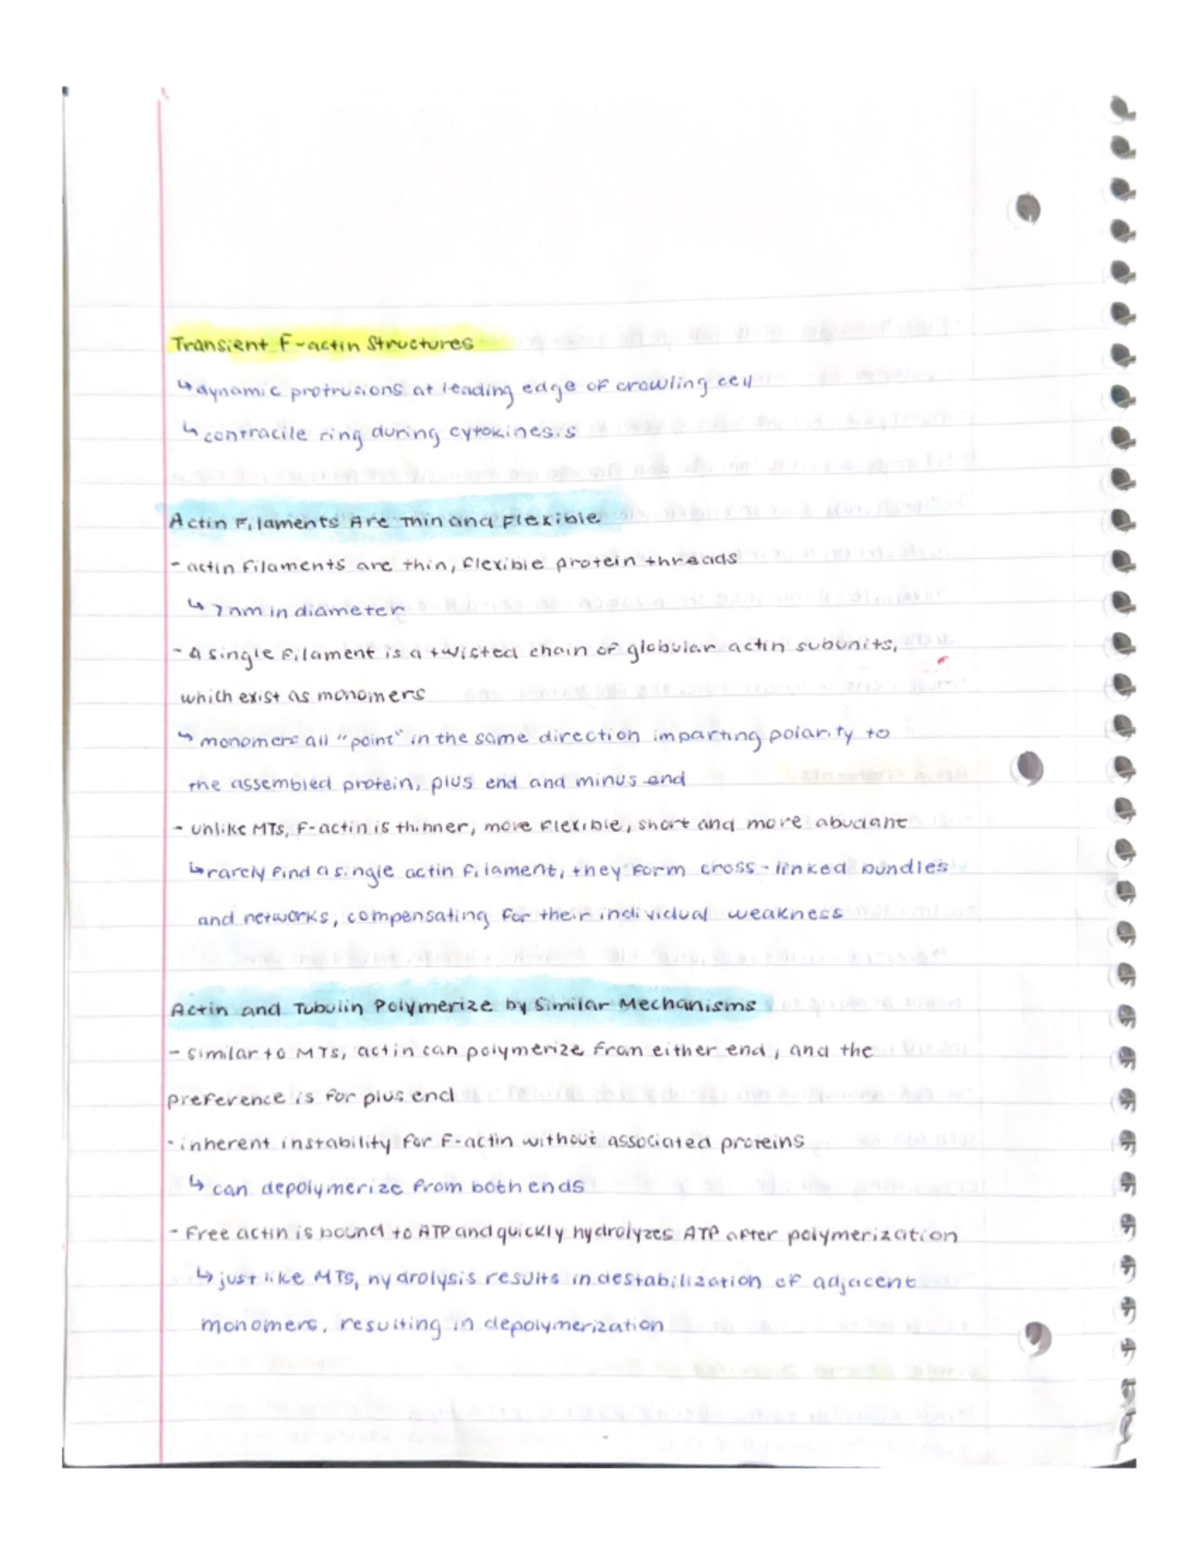 Transient F-actin Structures
↳ dynamic protrusions at leading edge of crawling cell
↳ contracile ring during cytokinesis
Actin Filaments Are Thin and Flexible
- actin filaments are thin, flexible protein threads
↳ 7 nm in diameter
- A single filament is a twisted chain of globular actin subunits,
which exist as monomers
↳ monomers all "point" in the same direction imparting polarity to
the assembled protein, plus end and minus end
- unlike MTs, F-actin is thinner, more flexible, short and more abudant
↳ rarely find a single actin filament, they form cross-linked bundles
and networks, compensating for their individual weakness
Actin and Tubulin Polymerize by Similar Mechanisms
- similar to MTs, actin can polymerize from either end, and the
preference is for plus end
- inherent instability for F-actin without associated proteins
↳ can depolymerize from both ends
- Free actin is bound to ATP and quickly hydrolyzes ATP after polymerization
↳ just like MTs, hydrolysis results in destabilization of adjacent
monomers, resulting in depolymerization